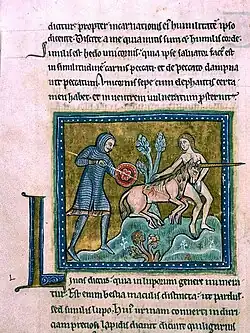 dicitur propter incarnationis ei humilitatē ipso
dicente. Discite a me quia mitis sum et humilis corde.
Similis est hedo unicornis. quia ipse salvator factus est
in similitudinem carnis peccati. et de peccato dampna
vit peccatum. Unicornis sepe cum elephantis certa
men habet. et in ventrem vulneratum prosternit.
L dictus quia in luporum genere numera
tur. Est enim bestia maculis distincta. ut pard
sed similis lupo. Huius urinam converti in duri
ciam preciosi lapidis dicunt qui ligurius